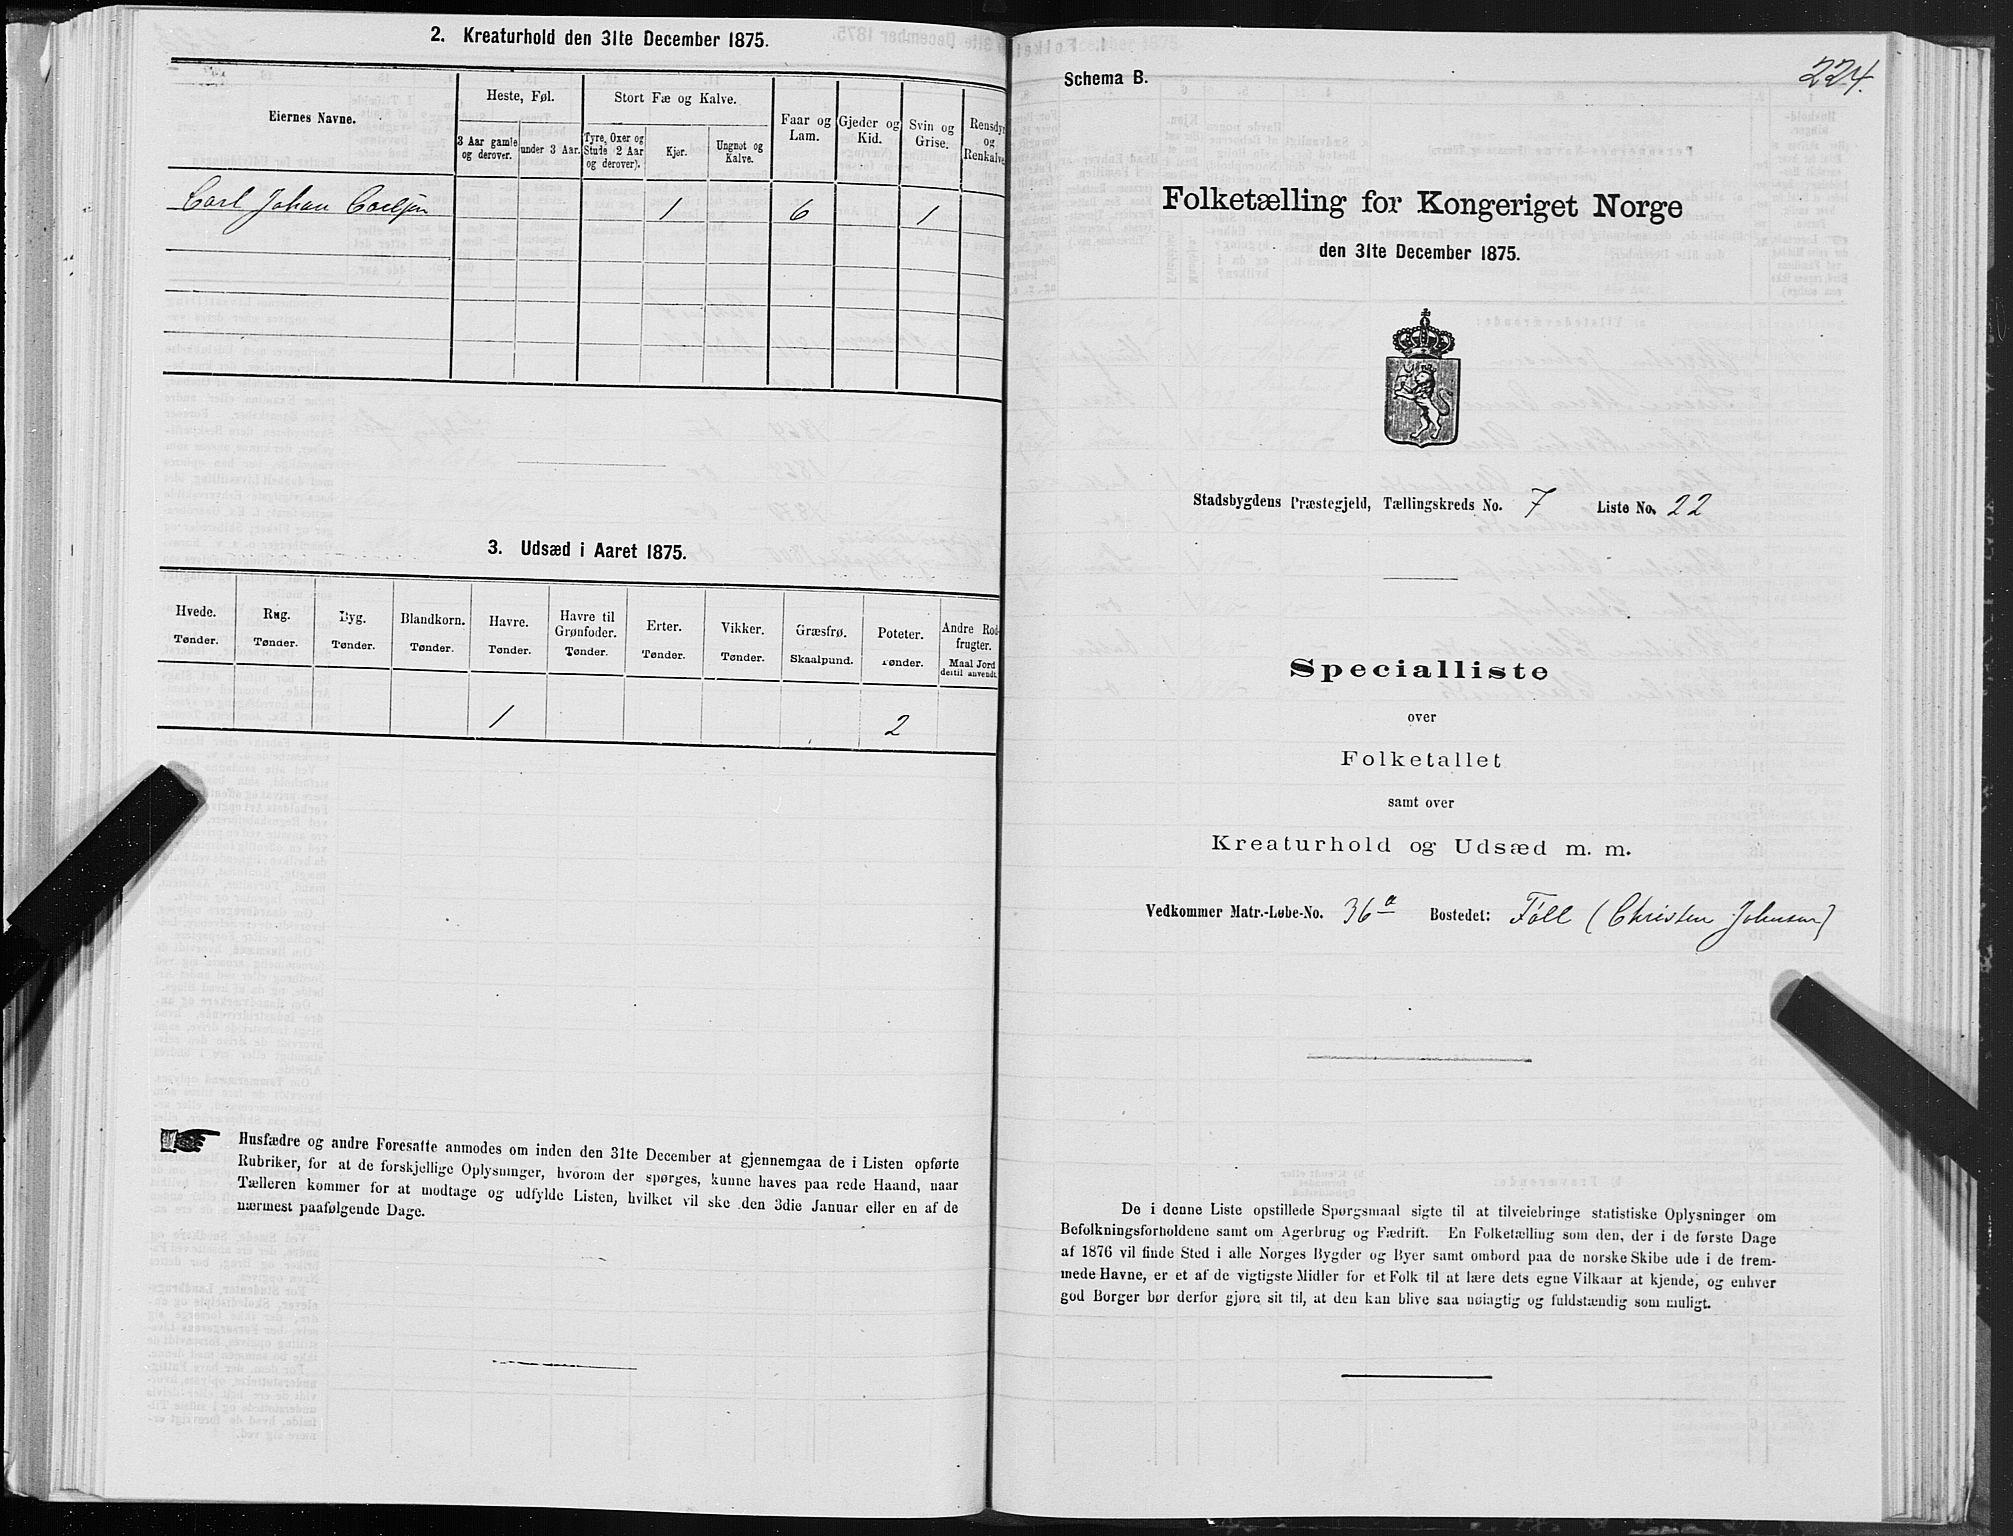 2. Kreaturhold den 31te December 1875.
Eiernes Navne.
Heste, Føl.
Stort Fæ og Kalve.
Faar og Lam.
Gjeder og Kid.
Svin og Grise.
Rensdyr og Renkalve
3 Aar gamle og derover.
under 3 Aar.
Tyre, Oxer og Stude 2 Aar og derover).
Kjør.
Ungnøt og Kalve.
Carl Johan 1 6 1
3. Udsæd i Aaret 1875.
Hvede. Rug. Byg. Blandkorn. Havre. Havre til Grønfoder. Erter. Vikker. Græsfrø. Poteter. Andre Rodfrugter.
Tønder. Tønder. Tønder. Tønder. Tønder. Tønder. Tønder. Tønder. Skaalpund. Tønder. Maal Jord dertil anvendt.
1 2
Husfædre og andre Foresatte anmodes om inden den 31te December at gjennemgaa de i Listen opførte
Rubriker, for at de forskjellige Oplysninger, hvorom der spørges, kunne haves paa rede Haand, naar
Tælleren kommer for at modtage og udfylde Listen, hvilket vil ske den 3die Januar eller en af de
nærmest paafølgende Dage.
224.
Schema B.
Folketælling for Kongeriget Norge
den 31te December 1875.
Stadsbygdens Præstegjeld, Tællingskreds No. 7 Liste No. 22
Specialliste
over
Folketallet
samt over
Kreaturhold og Udsæd m. m.
Vedkommer Matr.-Løbe-No. 36a Bostedet: Föll (Christen Johnsen)
De i denne Liste opstillede Spørgsmaal sigte til at tilveiebringe statistiske Oplysninger om
Befolkningsforholdene samt om Agerbrug og Fædrift. En Folketælling som den, der i de første Dage
af 1876 vil finde Sted i alle Norges Bygder og Byer samt ombord paa de norske Skibe ude i de frem-
mede Havne, er et af de vigtigste Midler for et Folk til at lære dets egne Vilkaar at kjende, og enhver
god Borger bør derfor gjøre sit til, at den kan blive saa nøiagtig og fuldstændig som muligt.